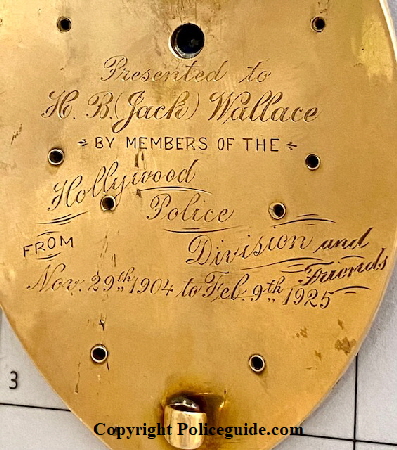 Presented to
H. B. (Jack) Wallace
BY MEMBERS OF THE
Hollywood
Police
Division and
Friends
FROM
Nov. 29th 1904 to Feb. 9th 1925
3
Copyright Policeguide.com